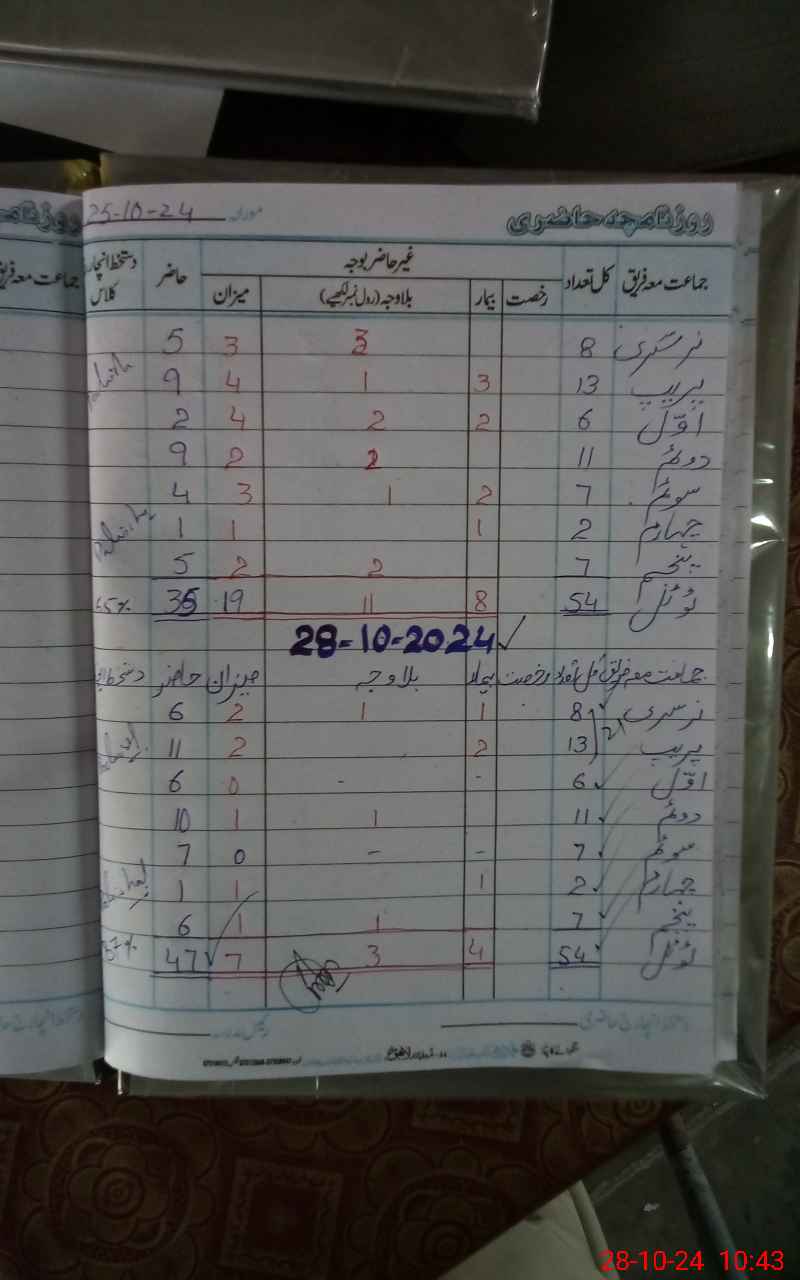 روزنامچہ حاضری مورخہ 25-10-24
جماعت معہ فریق کل تعداد غیر حاضر بوجہ حاضر دستخط انچارج کلاس
رخصت بیمار بلاوجہ (رول نمبر لکھیے) میزان
نرسری 8 3 3 5
پریپ 13 3 1 4 9
اوّل 6 2 2 4 2
دوئم 11 2 2 9
سوئم 7 2 1 3 4
چہارم 2 1 1 1
پنجم 7 2 2 5
ٹوٹل 54 8 11 19 35 65%
28-10-2024
جماعت معہ فریق کل تعداد رخصت بیمار بلاوجہ میزان حاضر دستخط
نرسری 8 1 1 2 6
21
پریپ 13 2 2 11
اوّل 6 - - 0 6
دوئم 11 1 1 10
سوئم 7 - - 0 7
چہارم 2 1 1 1
پنجم 7 1 1 6
ٹوٹل 54 4 3 7 47 87%
دستخط انچارج حاضری
28-10-24 10:43